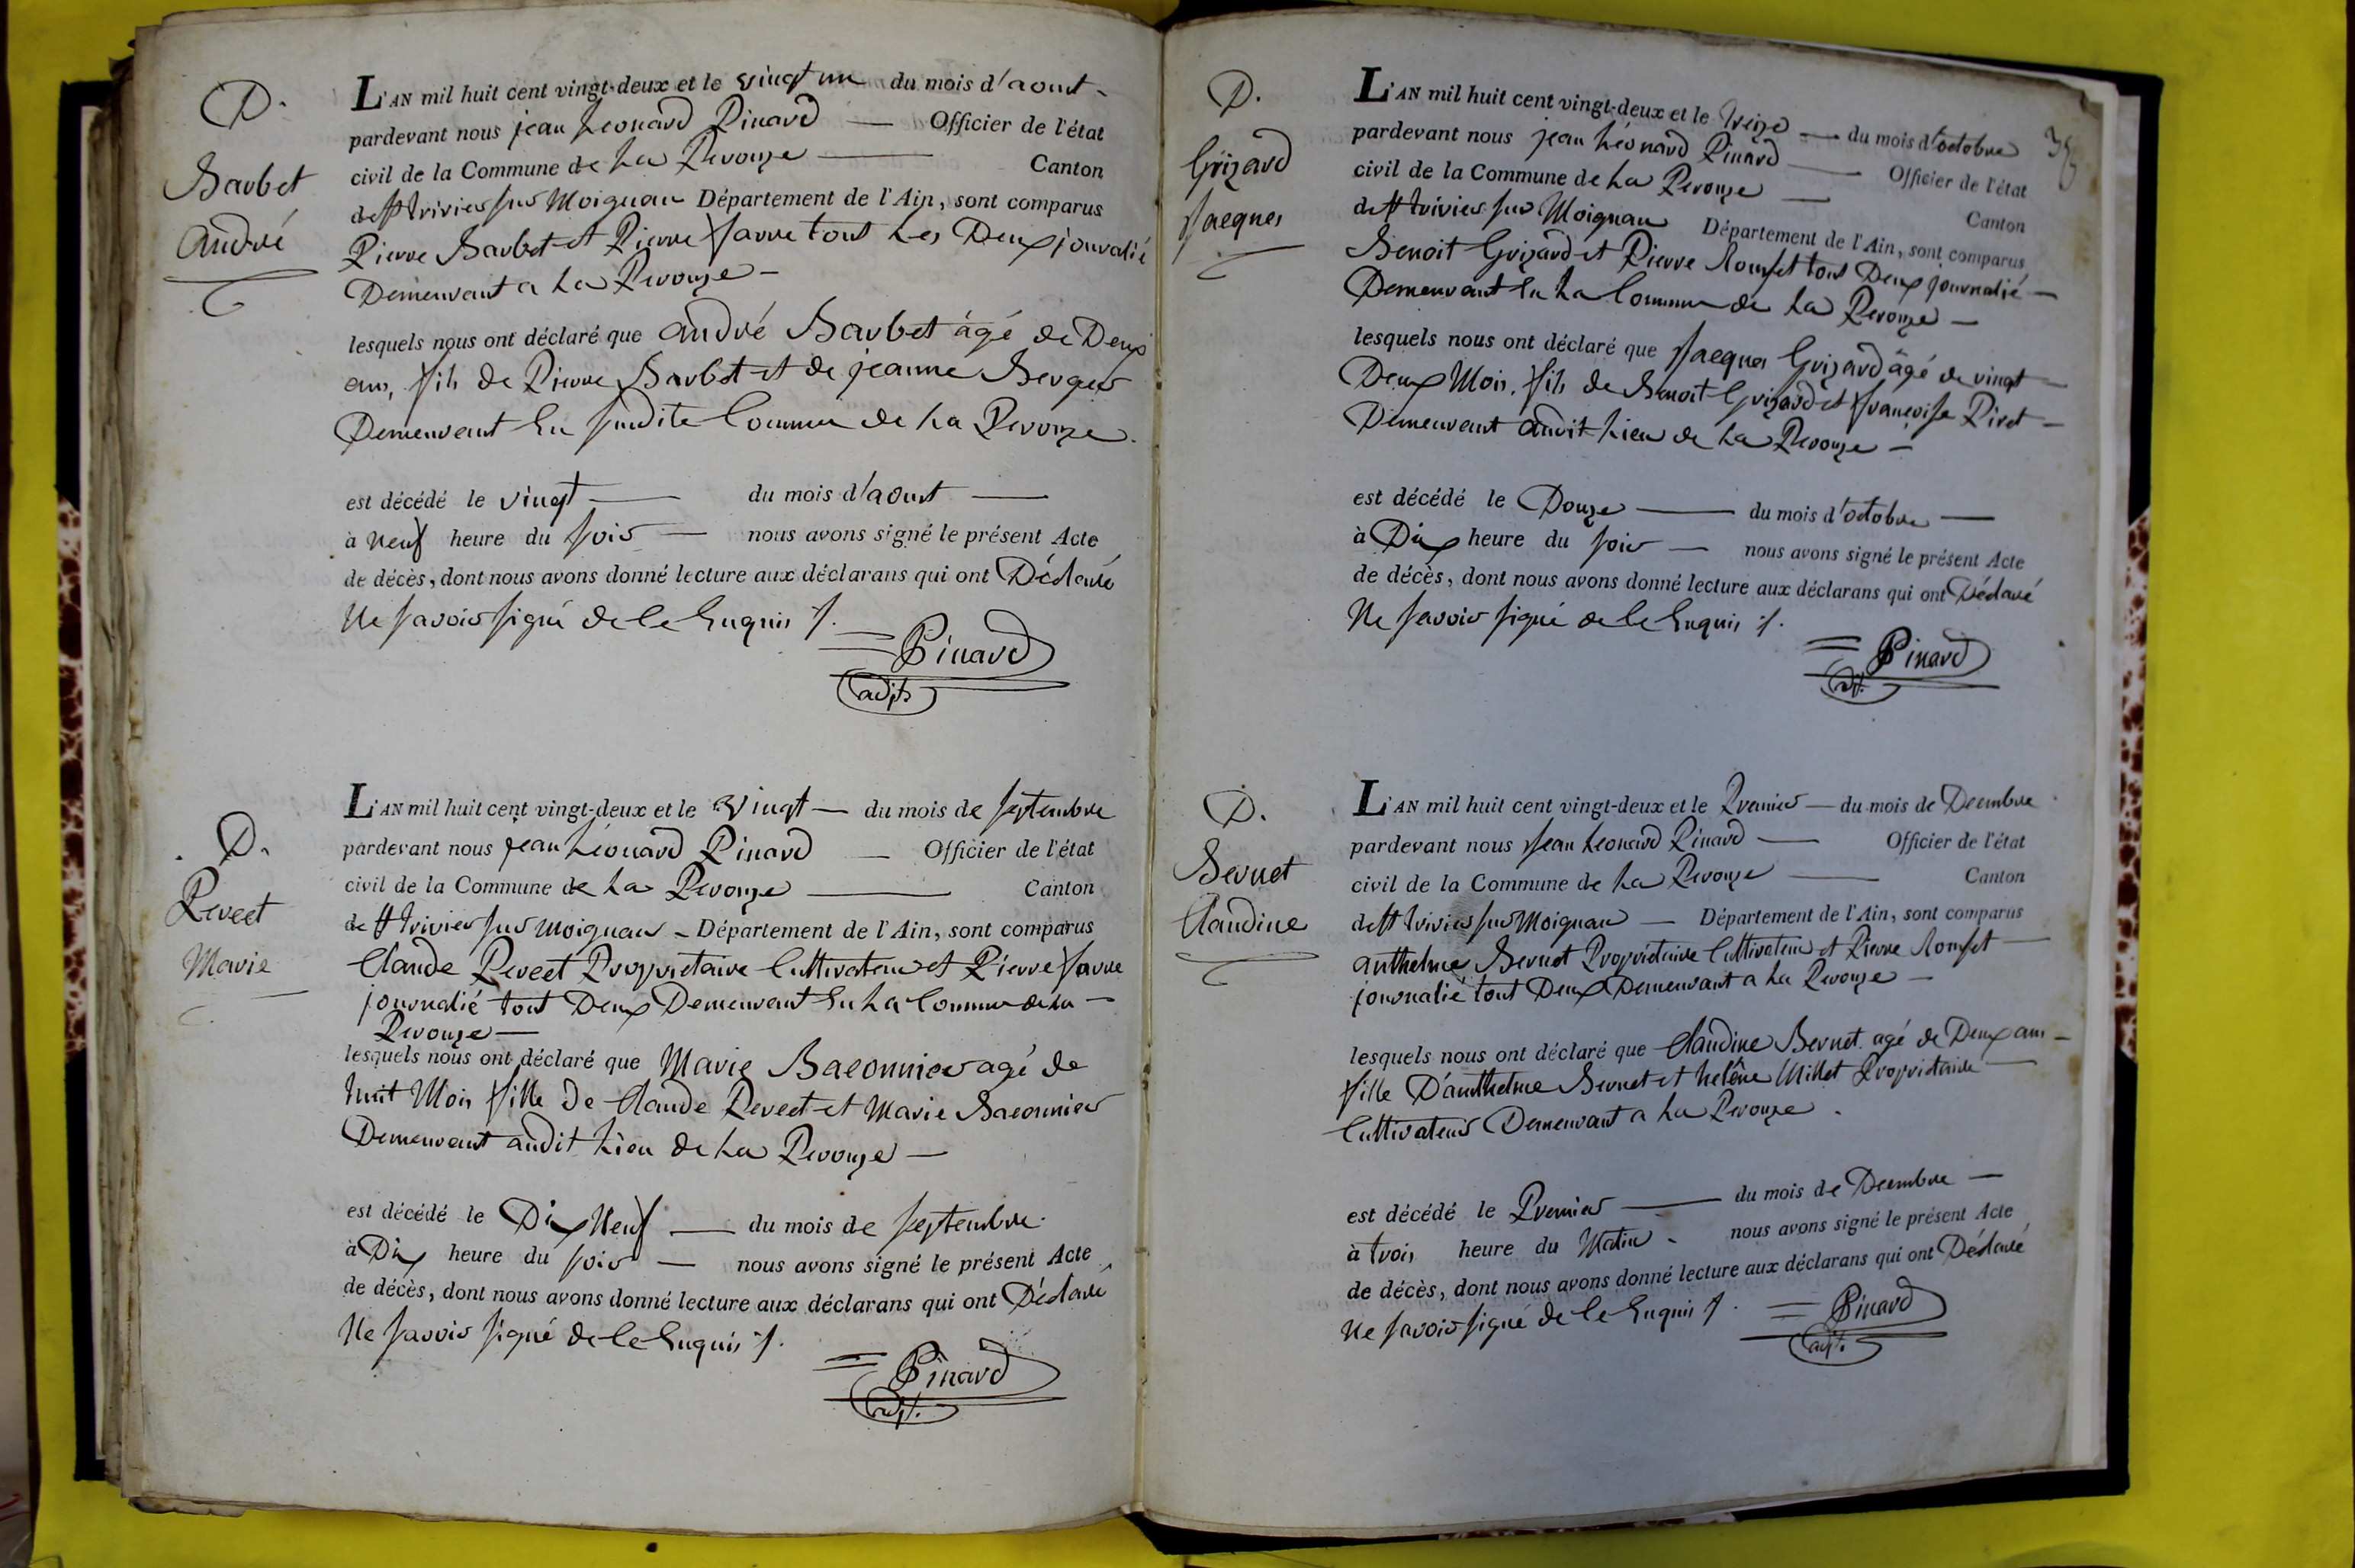 D.
Barbet
André
L'AN mil huit cent vingt-deux et le vingt un du mois d'aout
pardevant nous jean Léonard Pinard — Officier de l'état
civil de la Commune de La Perouze — Canton
de St trivier sur Moignan Département de l'Ain, sont comparus
Pierre Barbet et Pierre favre tout Les Deux journalié
Demeurant a La Perouze —
lesquels nous ont déclaré que andré Barbet âgé de Deux
ans, fils de Pierre Barbet et de jeanne Berger
Demeurant En susdite Commune de La Perouze.
est décédé le vingt — du mois d'aout —
à neuf heure du soir — nous avons signé le présent Acte
de décès, dont nous avons donné lecture aux déclarans qui ont Déclaré
Ne savoir signé de Ce Enquis
Pinard
adjt
D.
Peveet
Marie
L'AN mil huit cent vingt-deux et le Vingt — du mois de septembre
pardevant nous jean Léonard Pinard — Officier de l'état
civil de la Commune de La Perouze — Canton
de St trivier sur Moignan — Département de l'Ain, sont comparus
Claude Peveet Proprietaire Cultivateur et Pierre favre
journalié tout Deux Demeurant En La Commune de La —
Perouze —
lesquels nous ont déclaré que Marie Baconnier agé de
huit Mois fille de Claude Peveet et Marie Baconnier
Demeurant audit Lieu de La Perouze —
est décédé le Dix Neuf — du mois de septembre
à Dix heure du soir — nous avons signé le présent Acte
de décès, dont nous avons donné lecture aux déclarans qui ont Déclaré
Ne savoir signé de Ce Enquis
Pinard
adjt.
38
D.
Grizard
Jacques
L'AN mil huit cent vingt-deux et le treize — du mois d'octobre
pardevant nous jean Léonard Pinard — Officier de l'état
civil de la Commune de La Perouze — Canton
de St trivier sur Moignan Département de l'Ain, sont comparus
Benoit Grizard et Pierre Rousset tout Deux journalié —
Demeurant En La Commune de La Perouze —
lesquels nous ont déclaré que Jacques Grizard âgé de vingt —
Deux Mois, fils de Benoit Grizard et françoise Piret —
Demeurant audit Lieu de La Perouze —
est décédé le Douze — du mois d'octobre —
à Dix heure du soir — nous avons signé le présent Acte
de décès, dont nous avons donné lecture aux déclarans qui ont Déclaré
Ne savoir signé de Ce Enquis
Pinard
adjt.
D.
Bernet
Claudine
L'AN mil huit cent vingt-deux et le Premier — du mois de Decembre
pardevant nous Jean Léonard Pinard — Officier de l'état
civil de la Commune de La Perouze — Canton
de St trivier sur Moignan — Département de l'Ain, sont comparus
anthelme Bernet Propriétaire Cultivateur et Pierre Rousset —
journalié tout Deux Demeurant a La Perouze —
lesquels nous ont déclaré que Claudine Bernet agé de Deux ans —
fille D'anthelme Bernet et heléne Millet Propriétaire —
Cultivateur Demeurant a La Perouze.
est décédé le Premier — du mois de Decembre —
à trois heure du Matin — nous avons signé le présent Acte
de décès, dont nous avons donné lecture aux déclarans qui ont Déclaré
Ne savoir signé de Ce Enquis
Pinard
adjt.